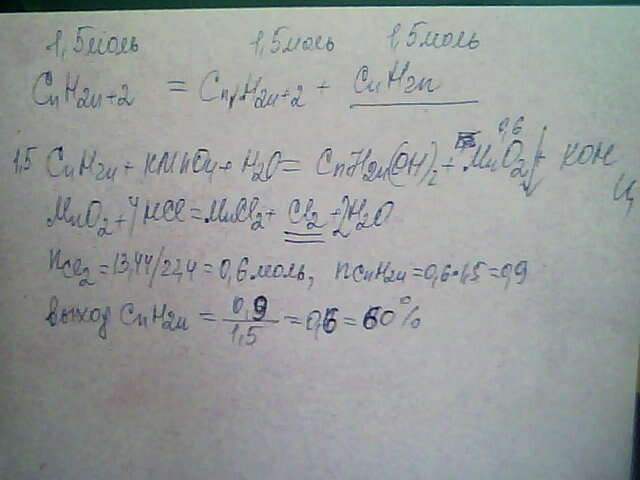 1,5моль 1,5моль 1,5моль
CnH2n+2 = Cn,H2n+2 + CnH2n
0,6
1,5 CnH2n + KMnO4 + H2O = CnH2n(OH)2 + MnO2↓ + KOH
MnO2 + 4HCl = MnCl2 + Cl2 + 2H2O
nCl2 = 13,44/22,4 = 0,6 моль, nCnH2n = 0,6•1,5 = 0,9
выход CnH2n = 0,9/1,5 = 0,6 = 60%